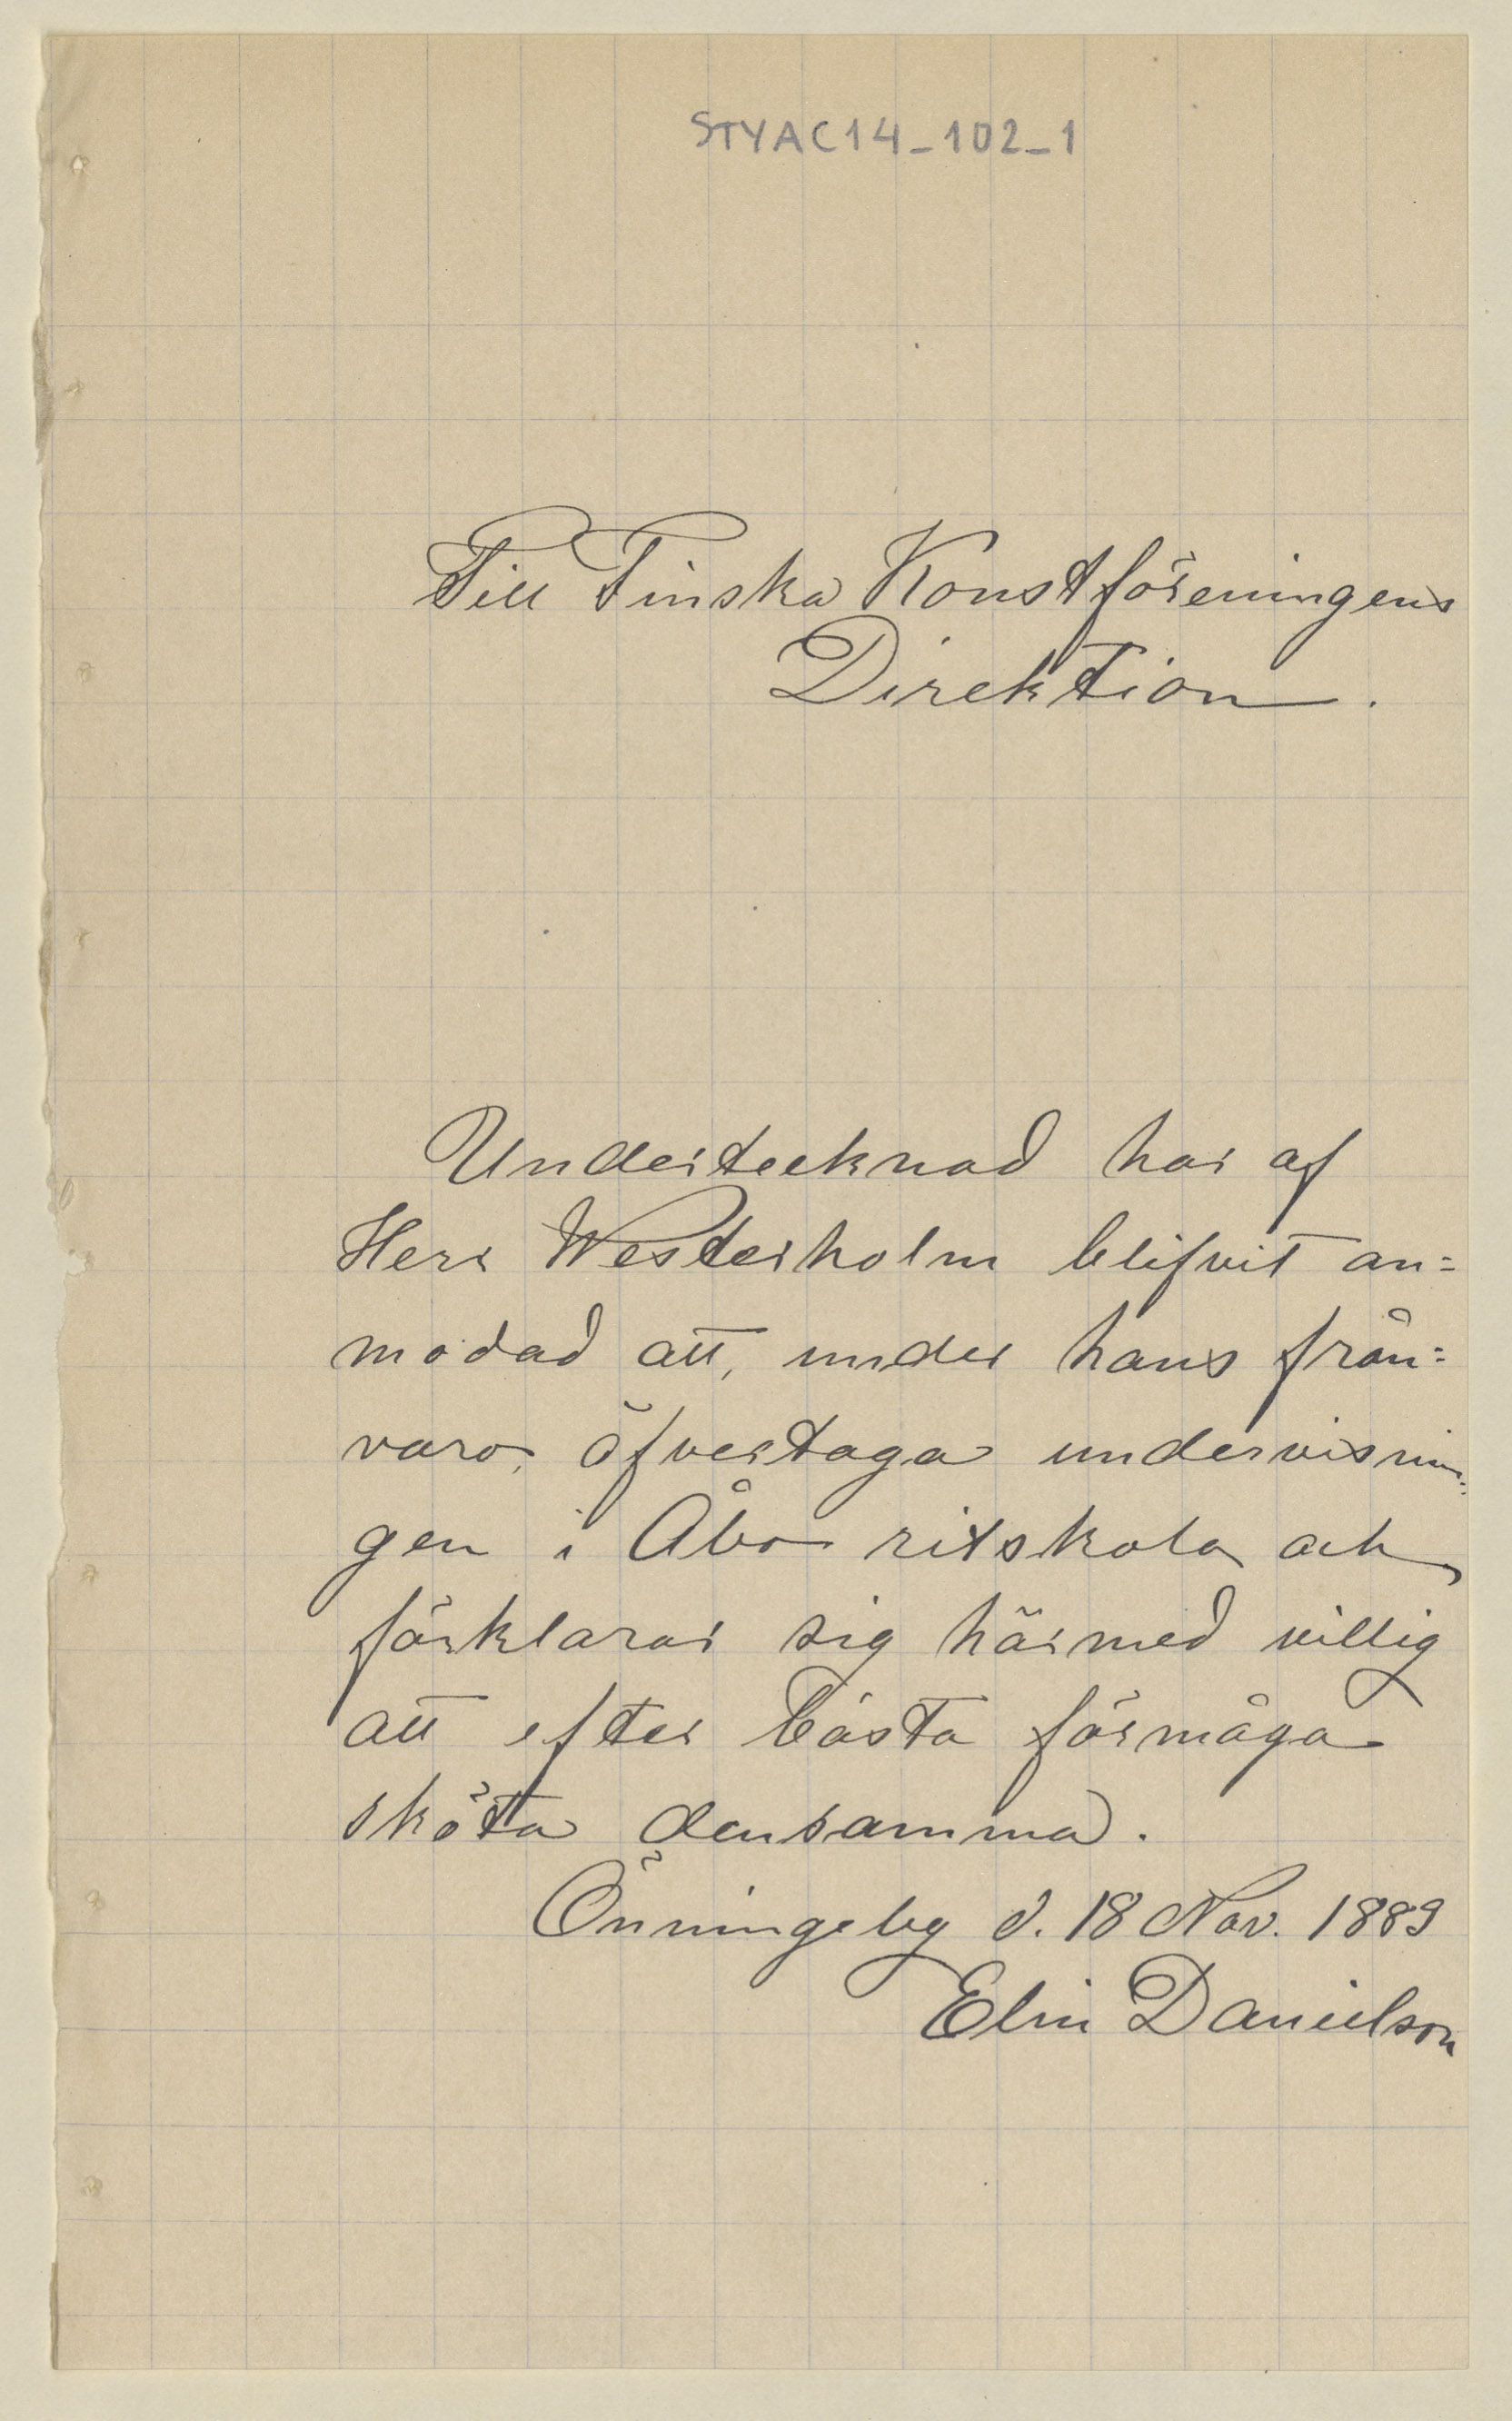 STYAC14_102_1
Till Finska Konstföreningens
Direktion.
Undertecknad har af
Herr Westerholm blifvit an=
modad att, under hans från=
varo, öfvertaga undervisnin=
gen i Åbo ritskola och
förklarar sig härmed villig
att efter bästa förmåga
sköta densamma.
Önningeby d. 18 Nov. 1889
Elin Danielson